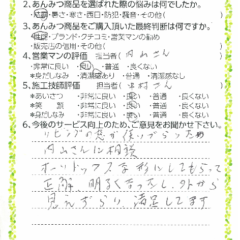 2.あんみつ商品を選ばれた際の悩みは何でしたか。
・結露・暑さ・寒さ・西日・防犯・騒音・その他( )
3.あんみつ商品をご購入頂いた最終判断は何ですか。
・性能・ブランド・クチコミ・営業マンの勧め
・販売店の信用・その他( )
4.営業マンの評価 担当者( 内山さん )
・非常に良い ・良い ・普通 ・良くない
*身だしなみ ・清潔感あり ・普通 ・清潔感なし
5.施工技師評価 担当者( さん )
*あいさつ ・非常に良い ・良い ・普通 ・良くない
*笑顔 ・非常に良い ・良い ・普通 ・良くない
*身だしなみ ・非常に良い ・良い ・普通 ・良くない
6.今後のサービス向上のため、ご意見をお聞かせ下さい。
リビングの窓が使いづらいため
内山さんに相談
オーソドックスな形にしてもらって
正解 明るくなったし、外から
見えづらい 満足してます